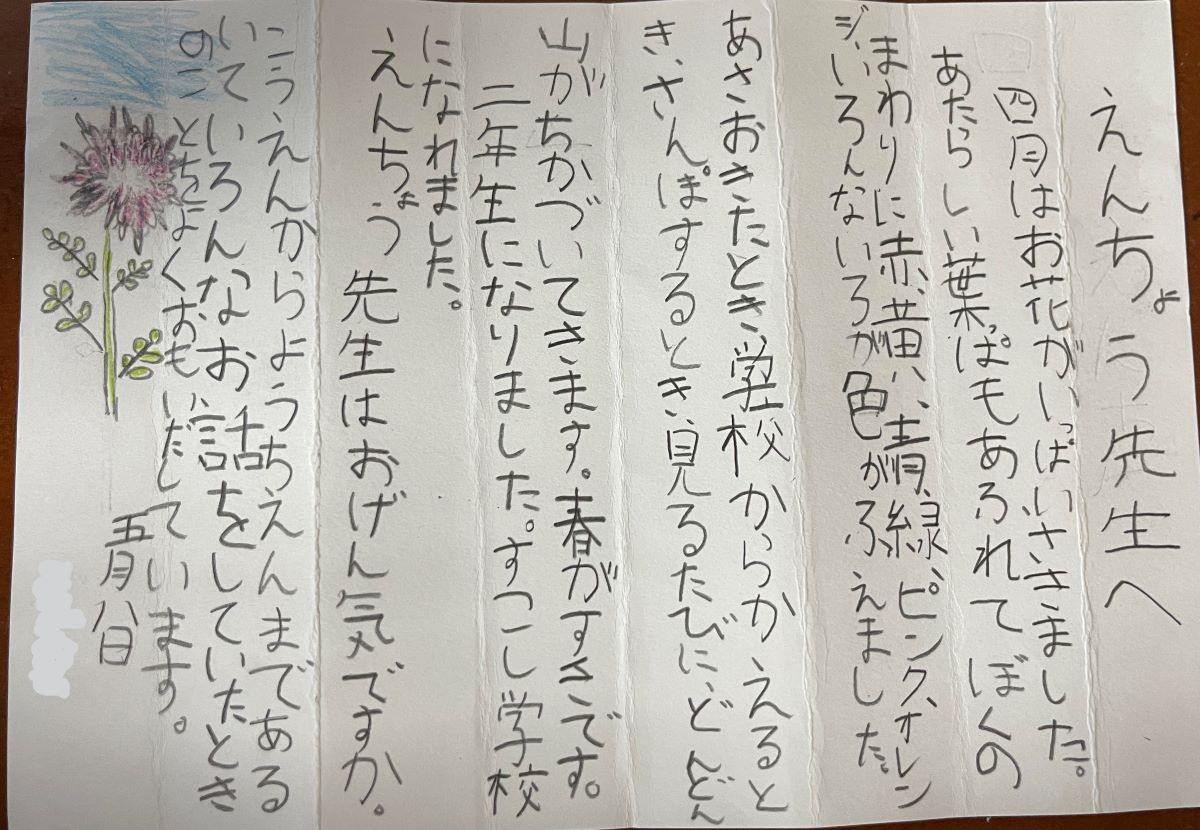 えんちょう先生へ
四月はお花がいっぱいさきました。
あたらしい葉っぱもあふれてぼくの
まわりに赤、黄い、青、緑、ピンク、オレン
ジ、いろんないろが色がふえました。
あさおきたとき、学校からかえると
き、さんぽするとき見るたびに、どんどん
山がちかづいてきます。春がすきです。
二年生になりました。すこし学校
になれました。
えんちょう先生はおげん気ですか。
こうえんからようちえんまである
いていろんなお話をしていたとき
のことをよくおもいだしています。
五月八日